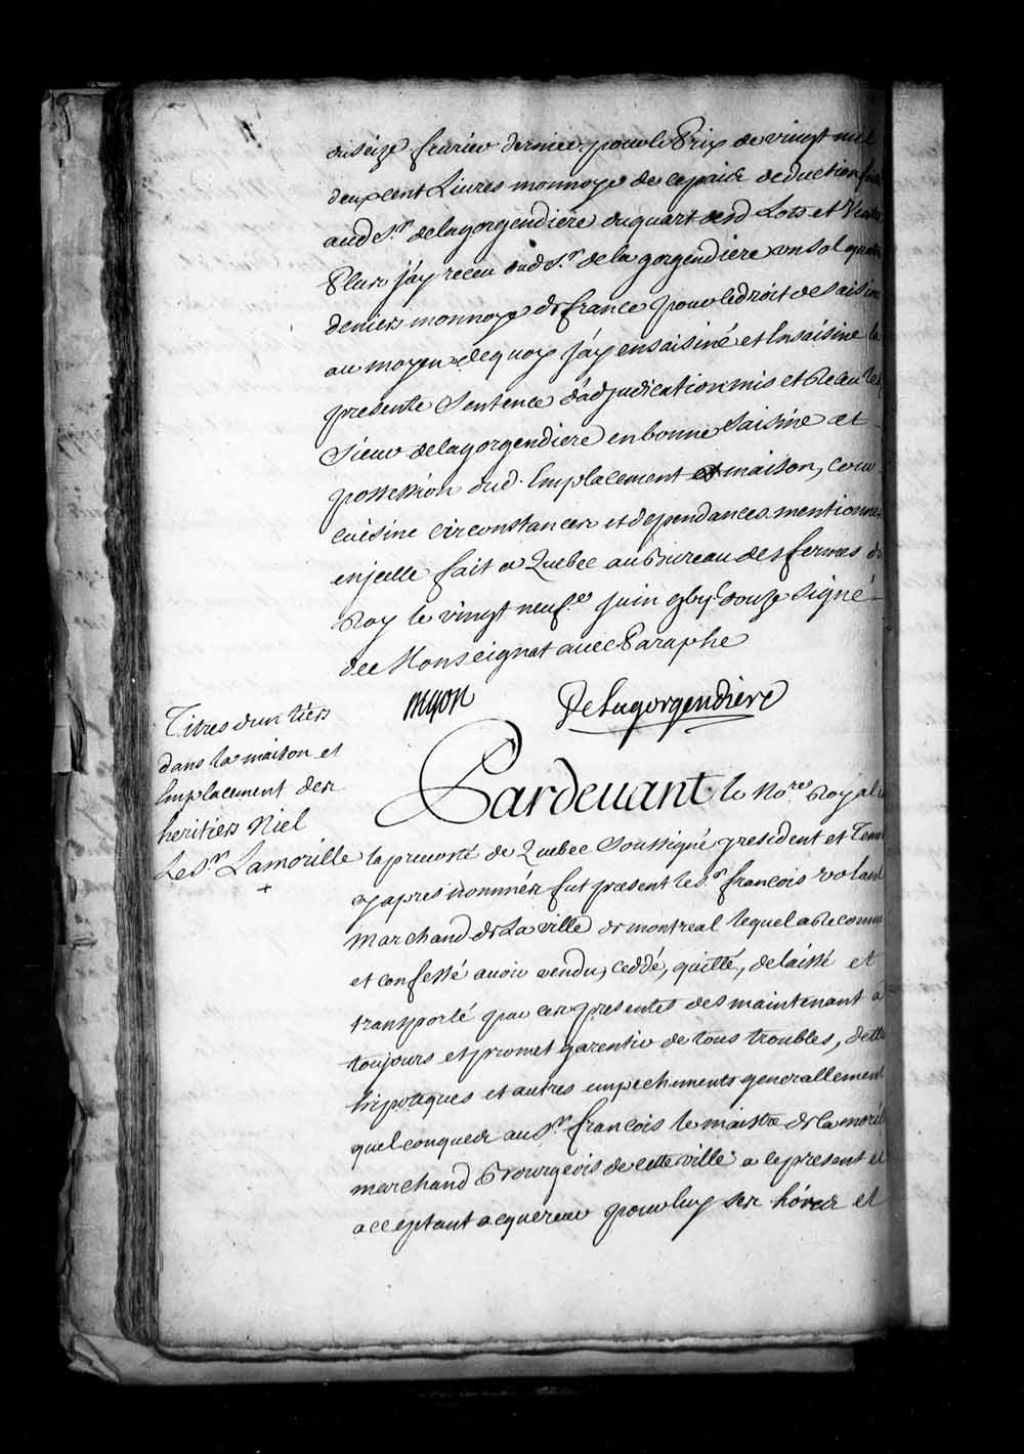 du seize fevrier dernier pour le Prix de vingt mil
deux cent Livres monnoye de ce païs deduction faite
aud Sr. delagorgendiere du quart desd Lots et Ventes
Plus j'ay receu dud Sr. de la gorgendiere un sol quatre
deniers monnoye de france pour le droit de saisine
au moyen de quoy j'ay ensaisiné et Ensaisine la
presente Sentence d'adjudication mis et Receu led
Sieur delagorgendiere en bonne Saisine et
possession dud. Emplacement et maison, cour
cuisine circonstances et dependances mentionnés
en jcelle fait a Quebec au Bureau des fermes du
Roy le vingt neufe. juin gbij. douze Signé
de Monseignat avec Paraphe
myon Delagorgendiere
Titres d'un tiers
dans la maison et
Emplacement des
heritiers Niel
Le Sr. Lamorille
+
Pardevant le Nore. Royal en
la prevosté de Quebec Soussigné y resident et Temoins
cy apres nommés fut present le Sr. francois volant
Marchand de La ville de montreal lequel a Reconnu
et confessé avoir vendu, ceddé, quitté, delaissé et
transporté par ces presentes des maintenant a
toujours et promet garentir de tous troubles, dettes
hipoteques et autres empechements generallement
quelconques au Sr. francois le maistre de la morille
marchand Bourgeois de cette ville a ce present et
acceptant acquereur pour luy ses hoirs et